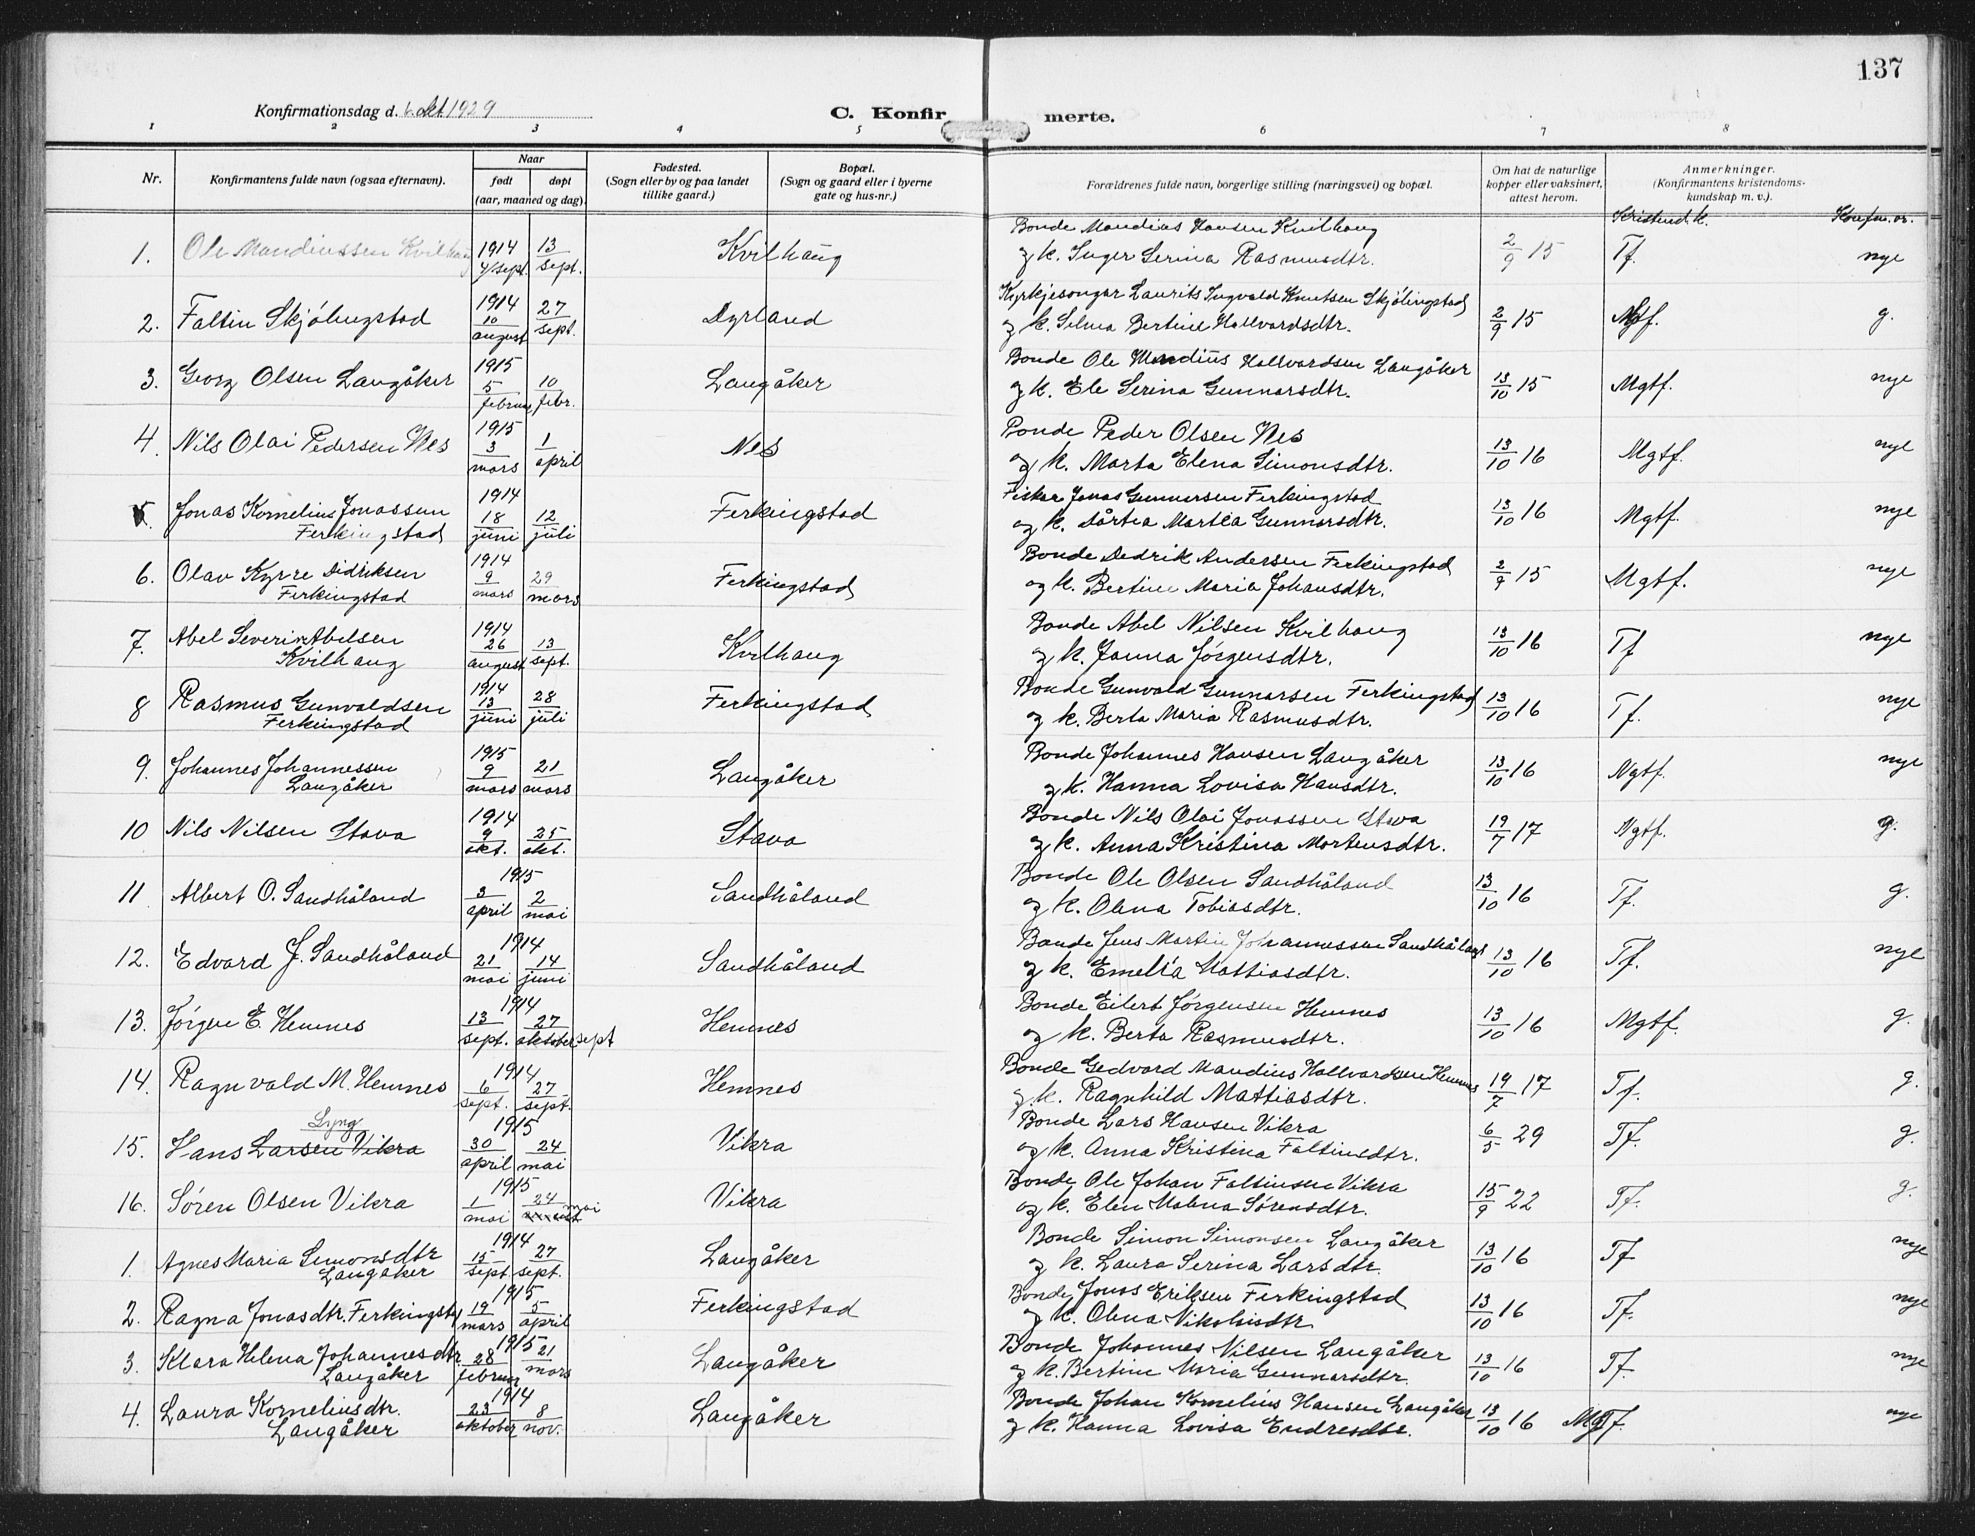 137
Konfirmationsdag d. 6 okt 1929
C. Konfir merte.
1 2 3 4 5 6 7 8
Nr.
Konfirmantens fulde navn (ogsaa efternavn).
Naar
født døpt
(aar, maaned og dag).
Fødested.
(Sogn eller by og paa landet
tillike gaard.)
Bopæl.
(Sogn og gaard eller i byerne
gate og hus-nr.)
Forældrenes fulde navn, borgerlige stilling (næringsvei) og bopæl.
Om hat de naturlige
kopper eller vaksinert,
attest herom.
Anmerkninger.
(Konfirmantens kristendoms-
kundskap m. v.).
Kristend.k.
1. Ole Mandiussen Kvilhaug 1914 4/sept. 13 sept. Kvilhaug
Bonde Mandius Hansen Kvilhaug
og k. Inger Serina Rasmusdtr. 2/9 15 Tf. nye
2. Faltin Skjölingstad 1914 10 august 27 sept. Dyrland
Kyrkjesongar Laurits Ingvald Knutsen Skjölingstad
og k. Selma Bertine Hallvardsdtr. 2/9 15 Mgtf. g.
3. Georg Olsen Langåker 1915 5 februar 10 febr. Langåker
Bonde Ole Mandius Hallvardsen Langåker
og k. Ele Serina Gunnarsdtr. 13/10 15 Mgtf. nye
4. Nils Olai Pedersen Nes 1915 3 mars 1 april Nes
Bonde Peder Olsen Nes
og k. Marta Elena Simonsdtr. 13/10 16 Mgtf. nye
5. Jonas Kornelius Jonassen
Ferkingstad 1914 18 juni 12 juli Ferkingstad
Fisker Jonas Gunnarsen Ferkingstad
og k. Dårtea Martea Gunnarsdtr. 13/10 16 Mgtf. nye
6. Olav Kyrre Didriksen
Ferkingstad 1914 9 mars 29 mars Ferkingstad
Bonde Dedrik Andersen Ferkingstad
og k. Bertine Maria Johansdtr. 2/9 15 Mgtf. nye
7. Abel Severin Abelsen
Kvilhaug 1914 26 august 13 sept. Kvilhaug
Bonde Abel Nilsen Kvilhaug
og k. Janna Jörgensdtr. 13/10 16 Tf nye
8 Rasmus Gunvaldsen
Ferkingstad 1914 13 juni 28 juli Ferkingstad
Bonde Gunvald Gunnarsen Ferkingstad
og k. Berta Maria Rasmusdtr. 13/10 16 Tf. nye
9. Johannes Johannessen
Langåker 1915 9 mars 21 mars Langåker
Bonde Johannes Hansen Langåker
og k. Hanna Lovisa Hansdtr. 13/10 16 Ngtf. nye
10 Nils Nilsen Stava 1914 9 okt. 25 okt. Stava
Bonde Nils Olai Jonassen Stava
og k. Anna Kristina Mortensdtr. 19/7 17 Ngtf. g.
11 Albert O. Sandhåland 1915 3 april 2 mai Sandhåland
Bonde Ole Olsen Sandhåland
og k. Olena Tobiasdtr. 13/10 16 Tf. g.
12. Edvard J. Sandhåland 1914 21 mai 14 juni Sandhåland
Bonde Jens Martin Johannessen Sandhåland
og k. Emelia Mattiasdtr. 13/10 16 Tf. nye
13. Jörgen E. Hemnes 1914 13 sept. 27 oktober sept Hemnes
Bonde Eilert Jørgensen Hemnes
og k. Berta Rasmusdtr. 13/10 16 Mgtf. g.
14. Ragnvald M. Hemnes 1914 6 sept. 27 sept. Hemnes
Bonde Gedvard Mandius Hallvardsen Hemnes
og k. Ragnhild Mattiasdtr. 19/7 17 Tf. g.
Lyng
15. Hans Larsen Vikra 1915 30 april 24 mai Vikra
Bonde Lars Hansen Vikra
og k. Anna Kristina Faltinsdtr. 6/5 29 Tf. g.
16. Sören Olsen Vikra 1915 1 mai 24 mai Vikra
Bonde Ole Johan Faltinsen Vikra
og k. Elen Malena Sörensdtr. 15/9 22 Tf. g.
1. Agnes Maria Simonsdtr
Langåker 1914 15 sept. 27 sept. Langåker
Bonde Simon Simonsen Langåker
og k. Laura Serina Larsdtr. 13/10 16 Tf nye
2. Ragna Jonasdtr. Ferkingstad 1915 19 mars 5 april Ferkingstad
Bonde Jonas Eriksen Ferkingstad
og k. Olena Nikolaisdtr 13/10 16 Tf. nye
3. Klara Helena Johannesdtr
Langåker 1915 28 februar 21 mars Langåker
Bonde Johannes Nilsen Langåker
og k. Bertine Maria Gunnarsdtr. 13/10 16 Tf. nye
4. Laura Kornelius dtr.
Langåker 1914 23 oktober 8 nov. Langåker
Bonde Johan Kornelius Hansen Langåker
og k. Hanna Lovisa Endresdtr. 13/10 16 MgTf. nye